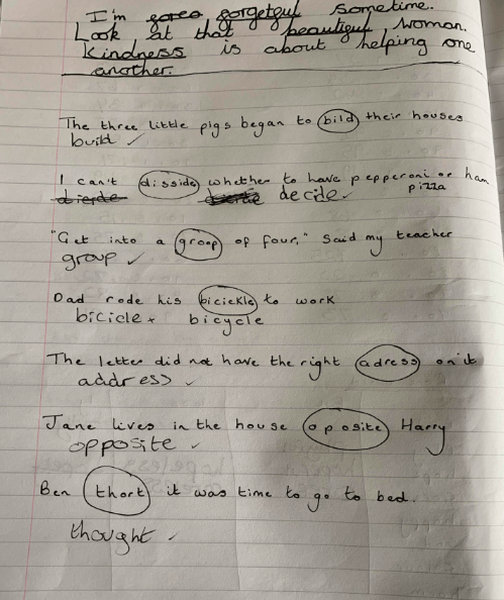 I'm gorgeful sometime.
Look at that beautiful woman.
Kindness is about helping one
another.
The three little pigs began to bild their houses
build ✓
I can't disside whether to have pepperoni or ham
pizza
decide ✓
"Get into a groop of four," said my teacher
group ✓
Dad rode his bicickle to work
bicicle x bicycle
The letter did not have the right adress on it
address ✓
Jane lives in the house oposite Harry
opposite ✓
Ben thort it was time to go to bed.
thought ✓